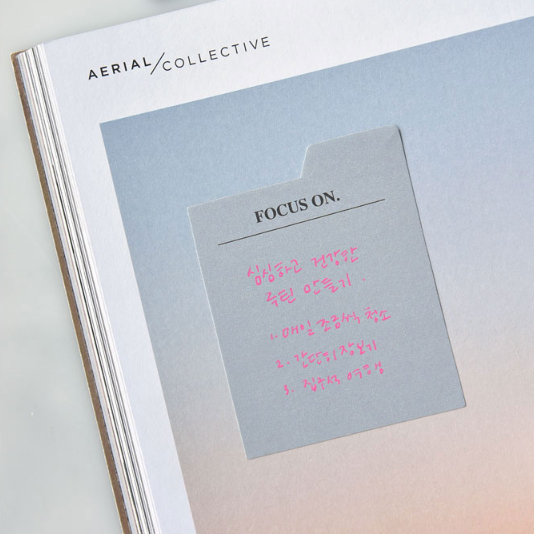 AERIAL/COLLECTIVE
FOCUS ON.
심심하고 건강한
루틴 만들기
1. 매일 조금씩 청소
2. 간단히 장보기
3. 집구석 여행